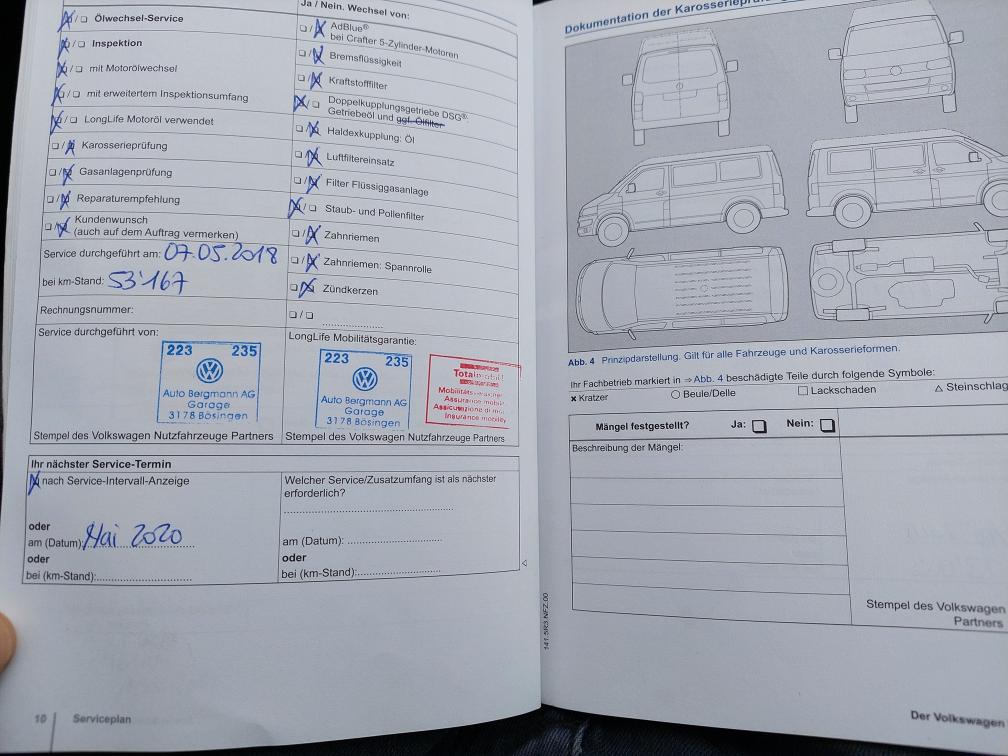 Ölwechsel-Service
Inspektion
mit Motorölwechsel
mit erweitertem Inspektionsumfang
LongLife Motoröl verwendet
Karosserieprüfung
Gasanlagenprüfung
Reparaturempfehlung
Kundenwunsch
(auch auf dem Auftrag vermerken)
Service durchgeführt am: 07.05.2018
bei km-Stand: 53'167
Rechnungsnummer:
Service durchgeführt von:
223 235
Auto Bergmann AG
Garage
3178 Bösingen
Stempel des Volkswagen Nutzfahrzeuge Partners
Ja / Nein. Wechsel von:
AdBlue®
bei Crafter 5-Zylinder-Motoren
Bremsflüssigkeit
Kraftstofffilter
Doppelkupplungsgetriebe DSG®:
Getriebeöl und ggf. Ölfilter
Haldexkupplung: Öl
Luftfiltereinsatz
Filter Flüssiggasanlage
Staub- und Pollenfilter
Zahnriemen
Zahnriemen: Spannrolle
Zündkerzen
LongLife Mobilitätsgarantie:
223 235
Auto Bergmann AG
Garage
3178 Bösingen
Totalmobil!
Assurance
Insurance mobility
Stempel des Volkswagen Nutzfahrzeuge Partners
Ihr nächster Service-Termin
nach Service-Intervall-Anzeige
oder
am (Datum): Mai 2020
oder
bei (km-Stand):
Welcher Service/Zusatzumfang ist als nächster
erforderlich?
am (Datum):
oder
bei (km-Stand):
141.5R3.NFZ.00
10 Serviceplan
Dokumentation der
Abb. 4 Prinzipdarstellung. Gilt für alle Fahrzeuge und Karosserieformen.
Ihr Fachbetrieb markiert in ⇒ Abb. 4 beschädigte Teile durch folgende Symbole:
× Kratzer ○ Beule/Delle □ Lackschaden △ Steinschlag
Mängel festgestellt? Ja: Nein:
Beschreibung der Mängel:
Stempel des Volkswagen
Partners
Der Volkswagen